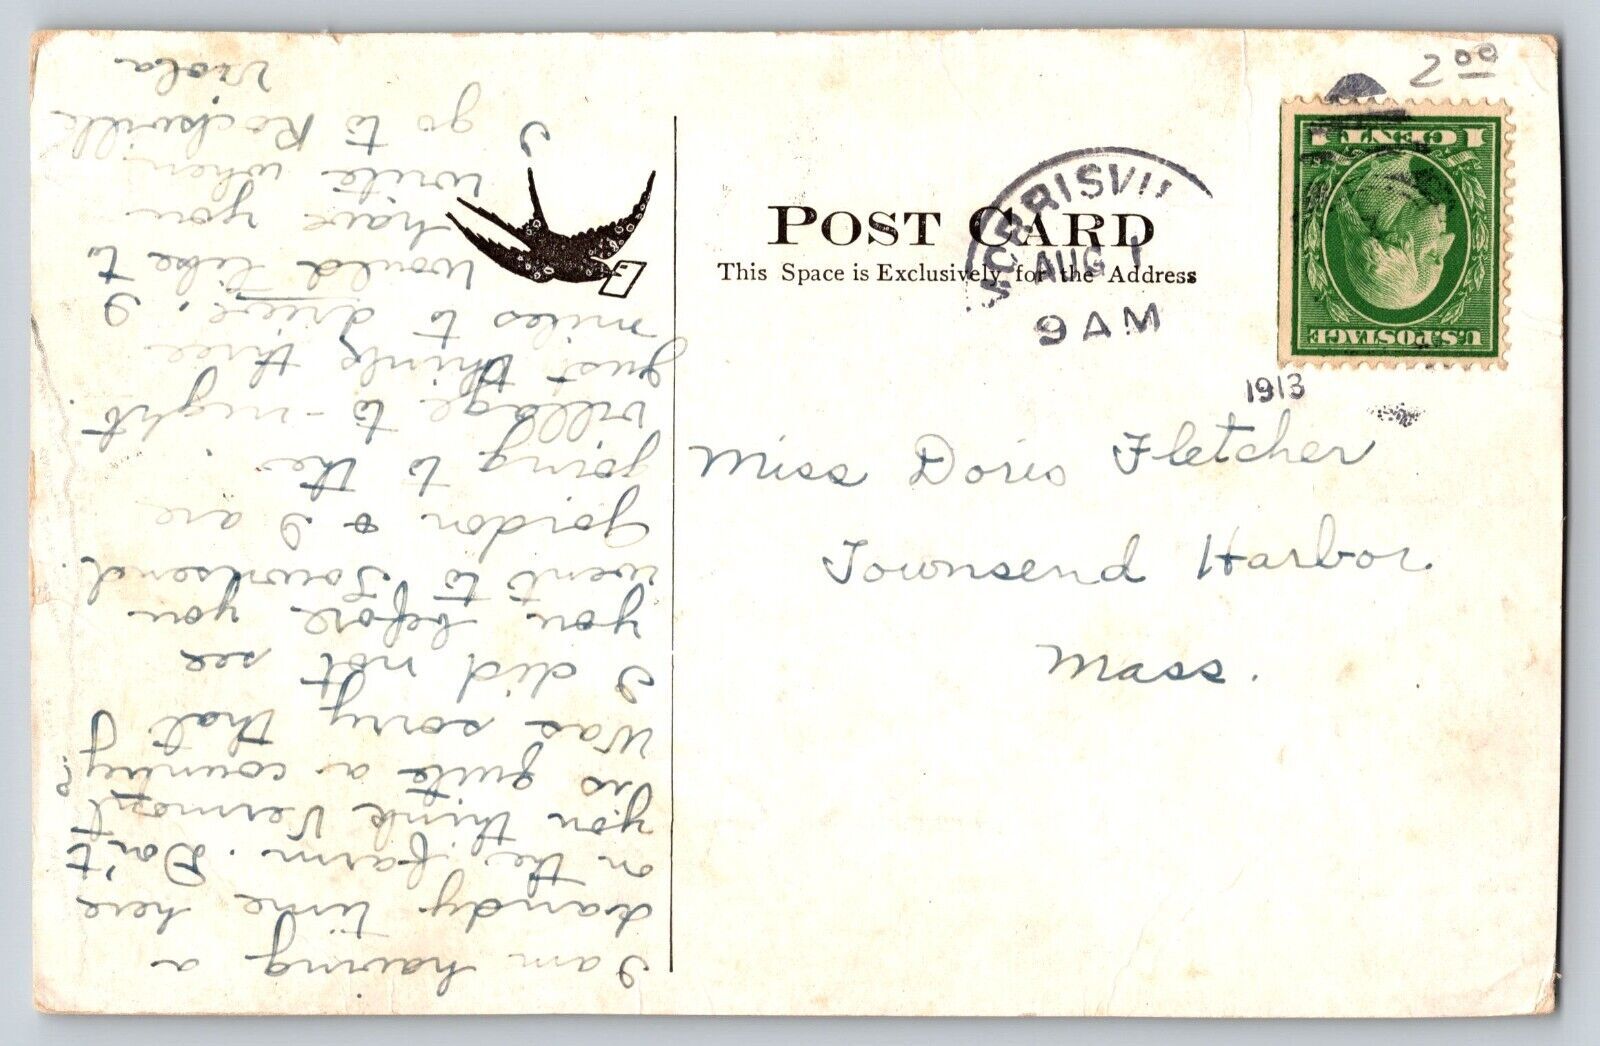 2.00
1 CENT 1
U.S. POSTAGE
POST CARD
This Space is Exclusively for the Address
MORRISVIL
AUG 1
9 AM
1913
Miss Doris Fletcher
Townsend Harbor
Mass.
I am having a
dandy time here
on the farm. Don't
you think Vermont
is quite a country?
Was sorry that
I did not see
you before you
went to Townsend.
Gordon & I are
going to the
village to-night.
Just think three
miles to drive. I
would like to
have you
write when
I
go to Rockville
Viola